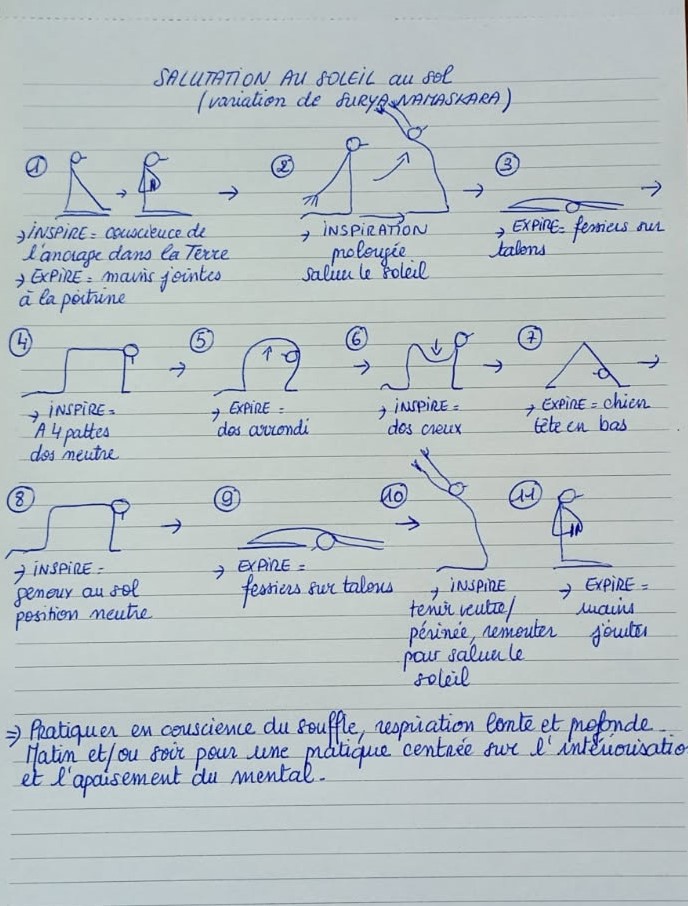 SALUTATION AU SOLEIL au sol
(variation de SURYA NAMASKARA)
1
→ INSPIRE = conscience de
l'ancrage dans la Terre
→ EXPIRE = mains jointes
à la poitrine
2
→ INSPIRATION
prolongée
saluer le soleil
3
→ EXPIRE = fessiers sur
talons
4
→ INSPIRE =
A 4 pattes
dos neutre
5
→ EXPIRE =
dos arrondi
6
→ INSPIRE =
dos creux
7
→ EXPIRE = chien
tête en bas
8
→ INSPIRE =
genoux au sol
position neutre
9
→ EXPIRE =
fessiers sur talons
10
→ INSPIRE
tenir ventre/
périnée, remonter
pour saluer le
soleil
11
→ EXPIRE =
mains
jointes
⇒ Pratiquer en conscience du souffle, respiration lente et profonde.
Matin et/ou soir pour une pratique centrée sur l'intériorisatio
et l'apaisement du mental.